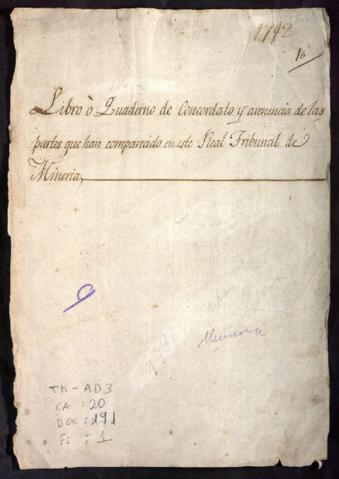 1792
16
Libro ò Quaderno de Concordato y avenencia de las
partes que han comparecido en este Real Tribunal de
Mineria,
9
Mineria
TM-AD3
CA : 20
DOC : 191
FS : 1